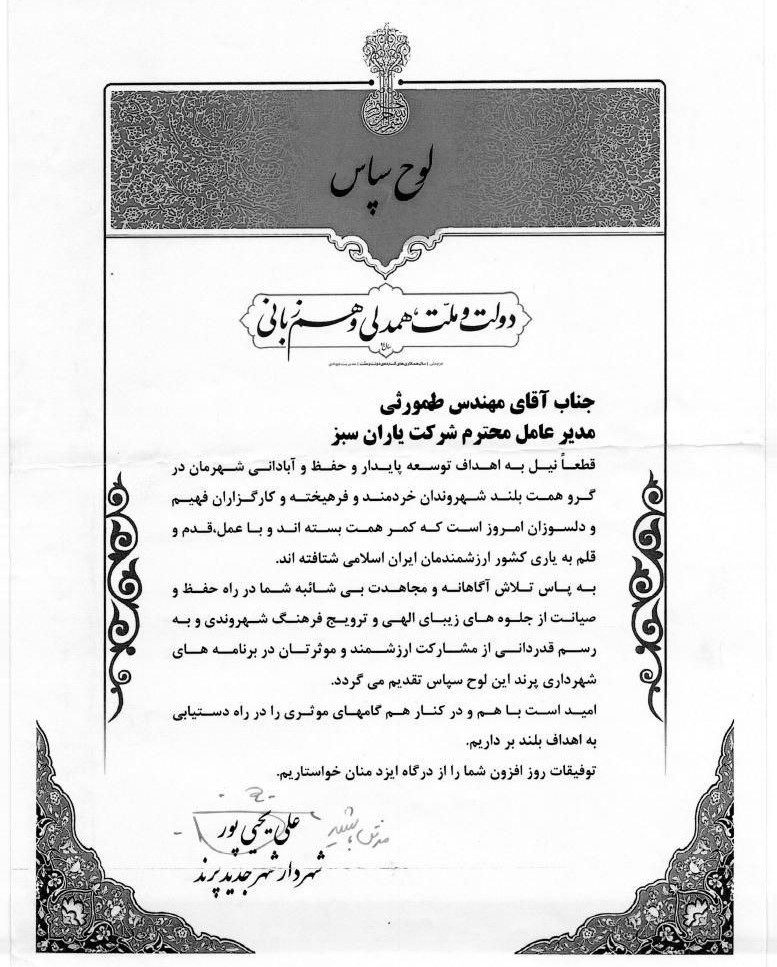 لوح سپاس
دولت و ملت، همدلی و هم زبانی
جناب آقای مهندس طهمورثی
مدیر عامل محترم شرکت یاران سبز
قطعاً نیل به اهداف توسعه پایدار و حفظ و آبادانی شهرمان در
گرو همت بلند شهروندان خردمند و فرهیخته و کارگزاران فهیم
و دلسوزان امروز است که کمر همت بسته اند و با عمل،قدم و
قلم به یاری کشور ارزشمندمان ایران اسلامی شتافته اند.
به پاس تلاش آگاهانه و مجاهدت بی شائبه شما در راه حفظ و
صیانت از جلوه های زیبای الهی و ترویج فرهنگ شهروندی و به
رسم قدردانی از مشارکت ارزشمند و موثرتان در برنامه های
شهرداری پرند این لوح سپاس تقدیم می گردد.
امید است با هم و در کنار هم گامهای موثری را در راه دستیابی
به اهداف بلند بر داریم.
توفیقات روز افزون شما را از درگاه ایزد منان خواستاریم.
موفق باشید
علی یحیی پور
شهردار شهر جدید پرند